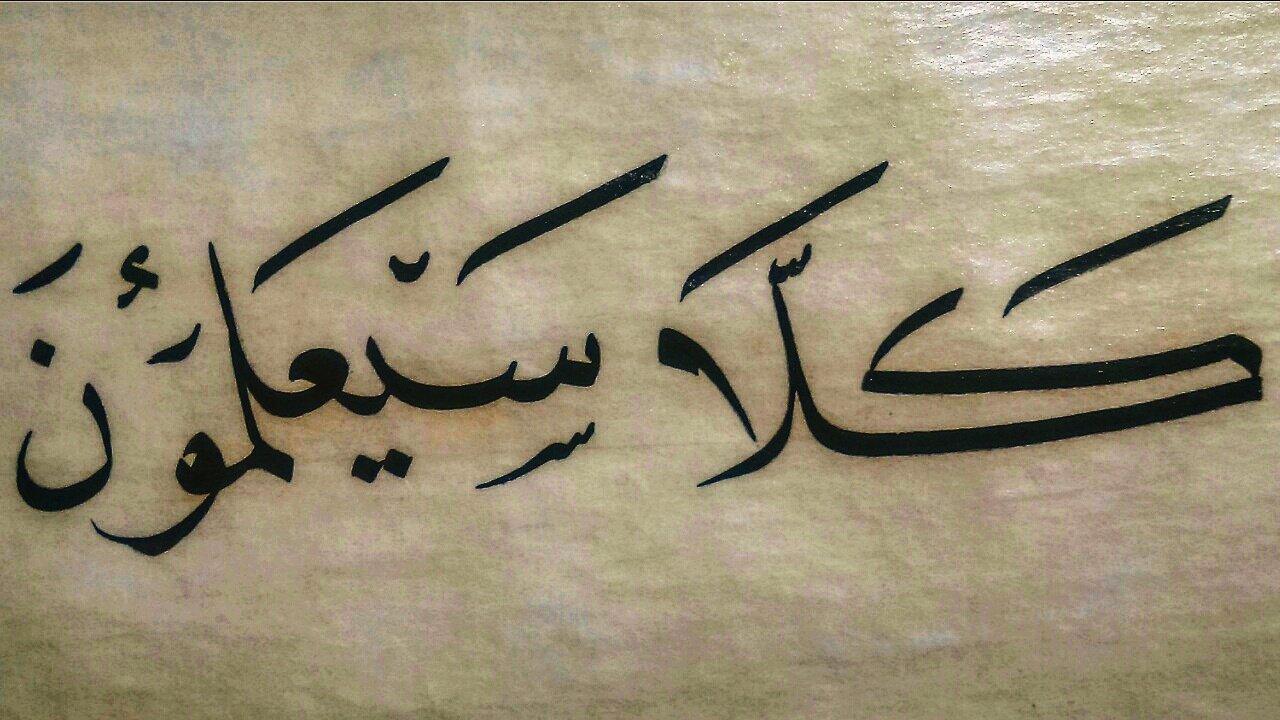 كَلَّا سَيَعْلَمُونَ